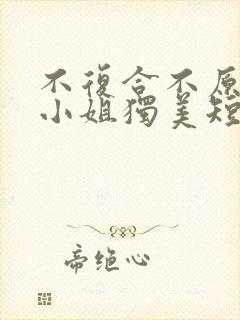 不復合不原
小姐獨美短
帝绝心